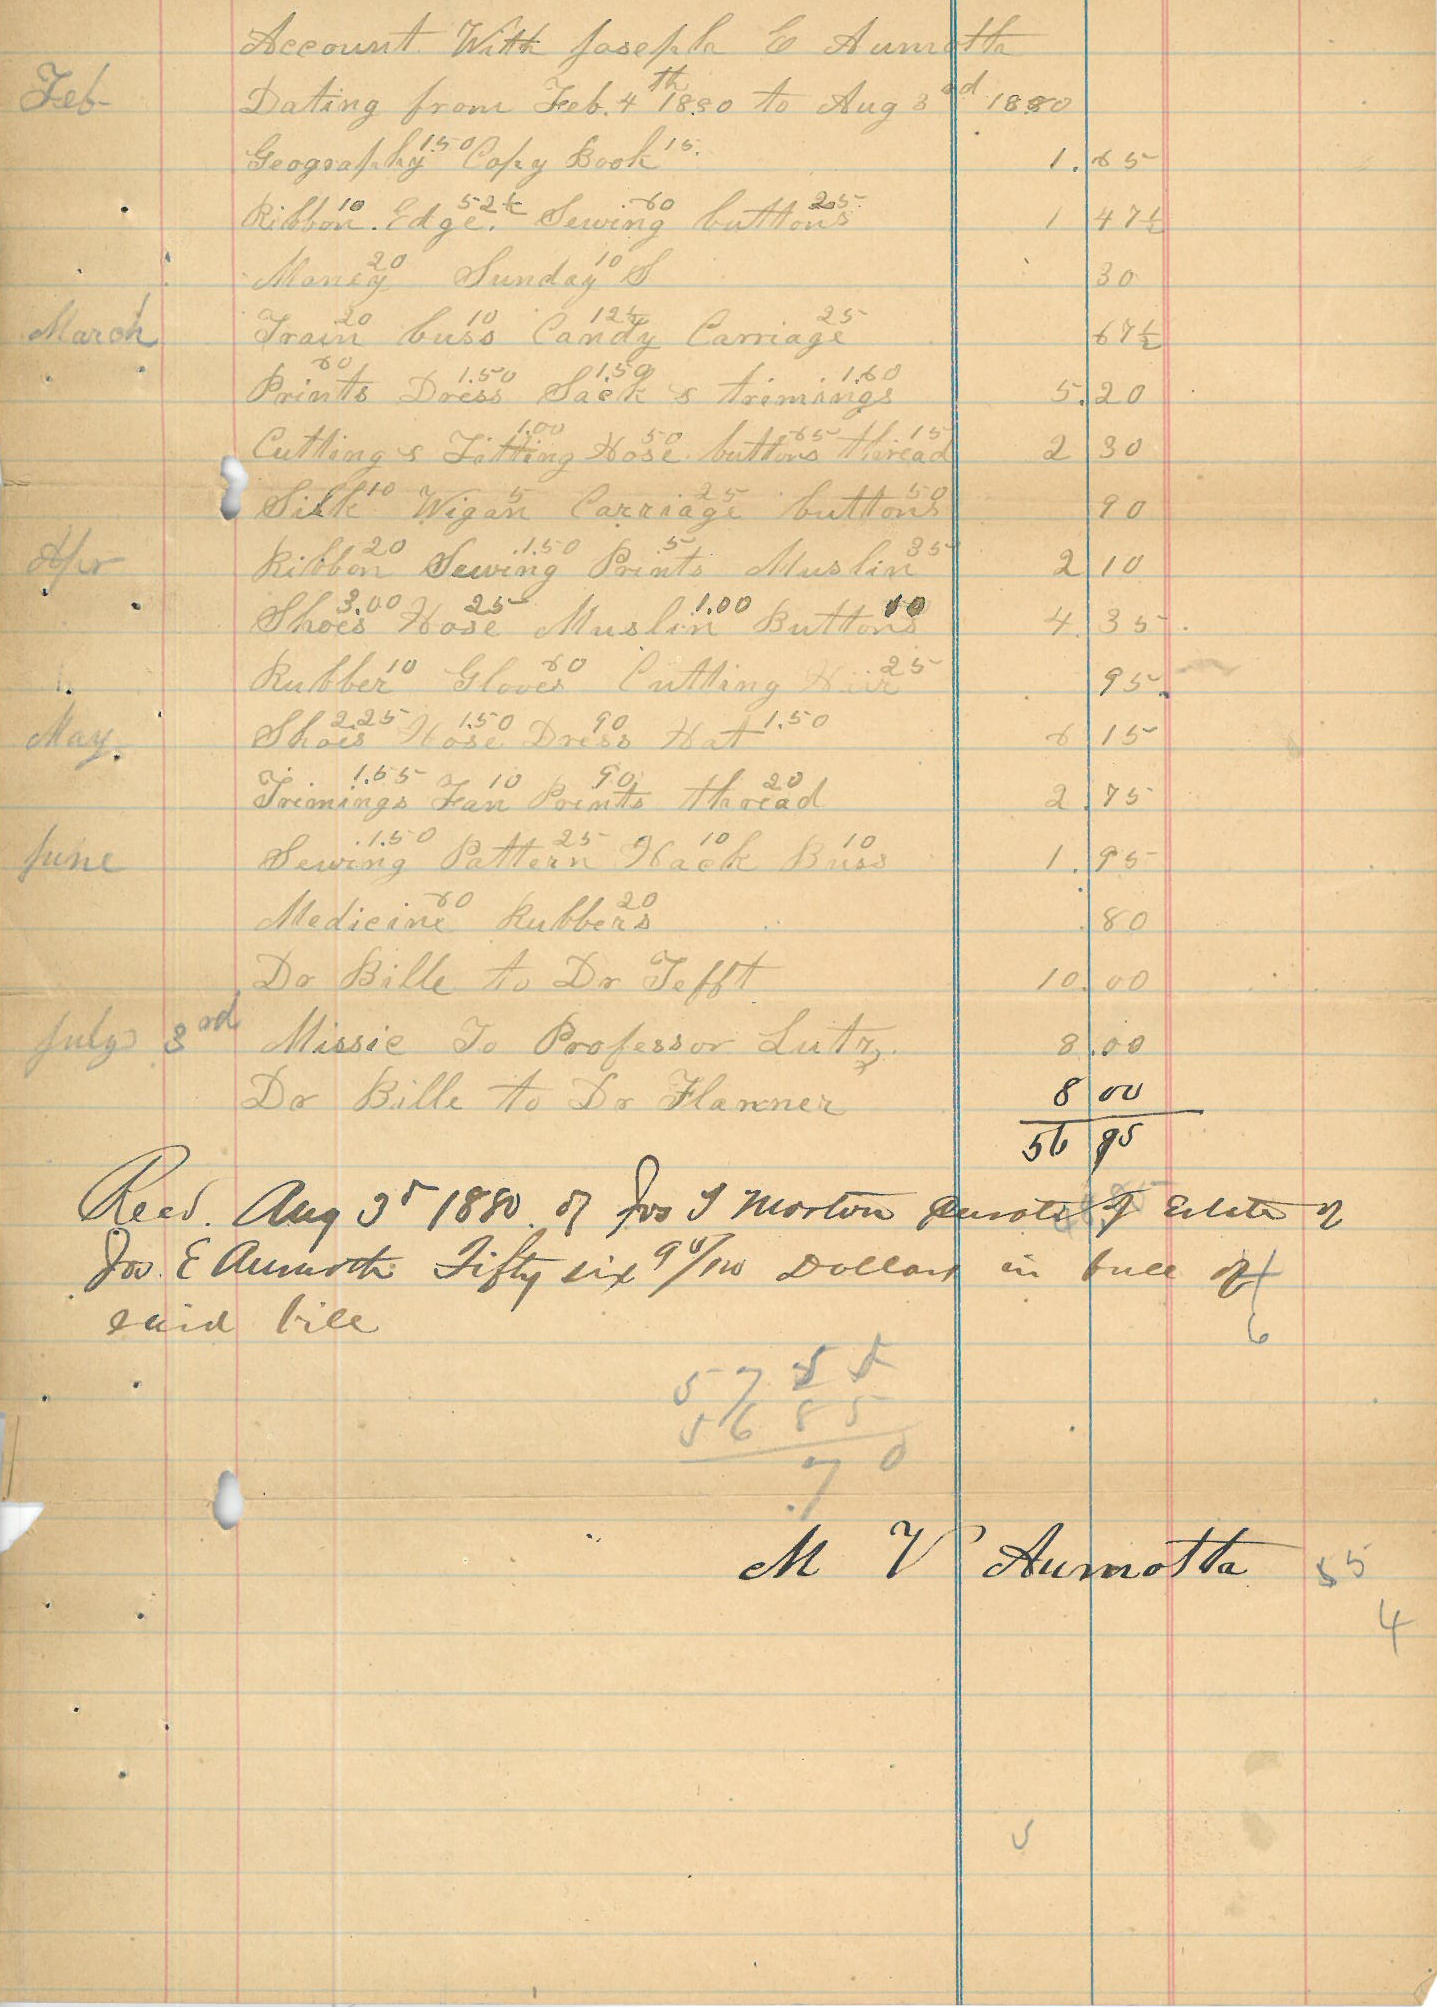 Account With Joseph E Aumotta
Feb Dating from Feb. 4th 1880 to Aug 3rd 1880
Geography 1.50 Copy Book 15. 1.65
Ribbon 10. Edge. 52½ Sewing 60 buttons 25 1 47½
Money 20 Sunday 10 S 30
March Train 20 buss 10 Candy 12½ Carriage 25 67½
Prints 60 Dress 1.50 Sack 1.50 & trimings 1.60 5.20
Cutting & Fitting 1.00 Hose 50 buttons 65 thread 15 2 30
Silk 10 Wigan 5 Carriage 25 buttons 50 90
Apr Ribbon 20 Sewing 1.50 Prints 5 Muslin 35 2 10
Shoes 3.00 Hose 25 Muslin 1.00 Buttons 10 4.35
Rubber 10 Gloves 60 Cutting Hair 25 95
May. Shoes 2.25 Hose 1.50 Dress 90 Hat 1.50 6 15
Trimings 1.55 Fan 10 Prints 90 thread 20 2.75
June Sewing 1.50 Pattern 25 Hack 10 Buss 10 1.95
Medicine 60 Rubbers 20 .80
Dr Bille to Dr Tefft 10.00
July 3rd Missie To Professor Lutz. 8.00
Dr Bille to Dr Flanner 8 00
56 95
Recd. Aug 3d 1880 of Jos T Morton of Estate of
Jos. E Aumotta Fifty six 95/100 Dollars in full of
said bill
57 55
56 85
.70
M V Aumotta 55
4
6
5